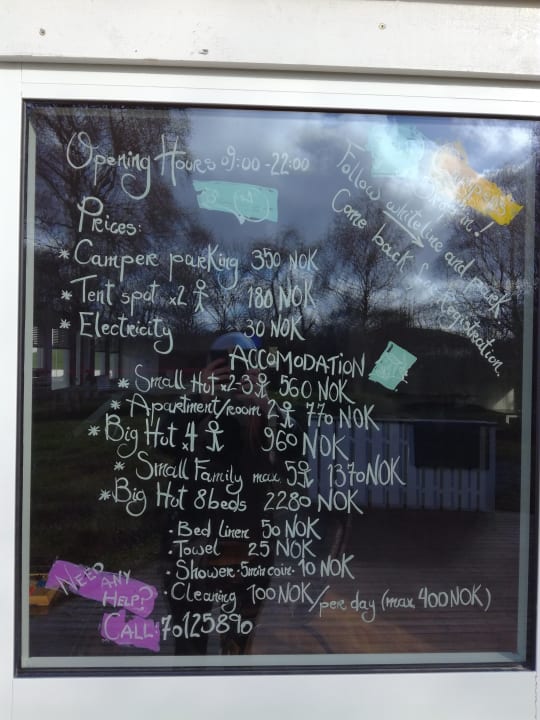 Opening Hours 09:00-22:00
Follow whiteline and park
Come back for Registration.
Prices:
* Camper parking 350 NOK
* Tent spot x2 180 NOK
* Electricity 30 NOK
ACCOMODATION
* Small Hut x2-3 560 NOK
* Apartment/room 2 770 NOK
* Big Hut x4 960 NOK
* Small Family max 5 1370NOK
* Big Hut 8beds 2280 NOK
· Bed linen 50 NOK
· Towel 25 NOK
· Shower·5min coin·10 NOK
· Cleaning 100 NOK/per day (max 400 NOK)
NEED ANY
HELP?
CALL: 70125890